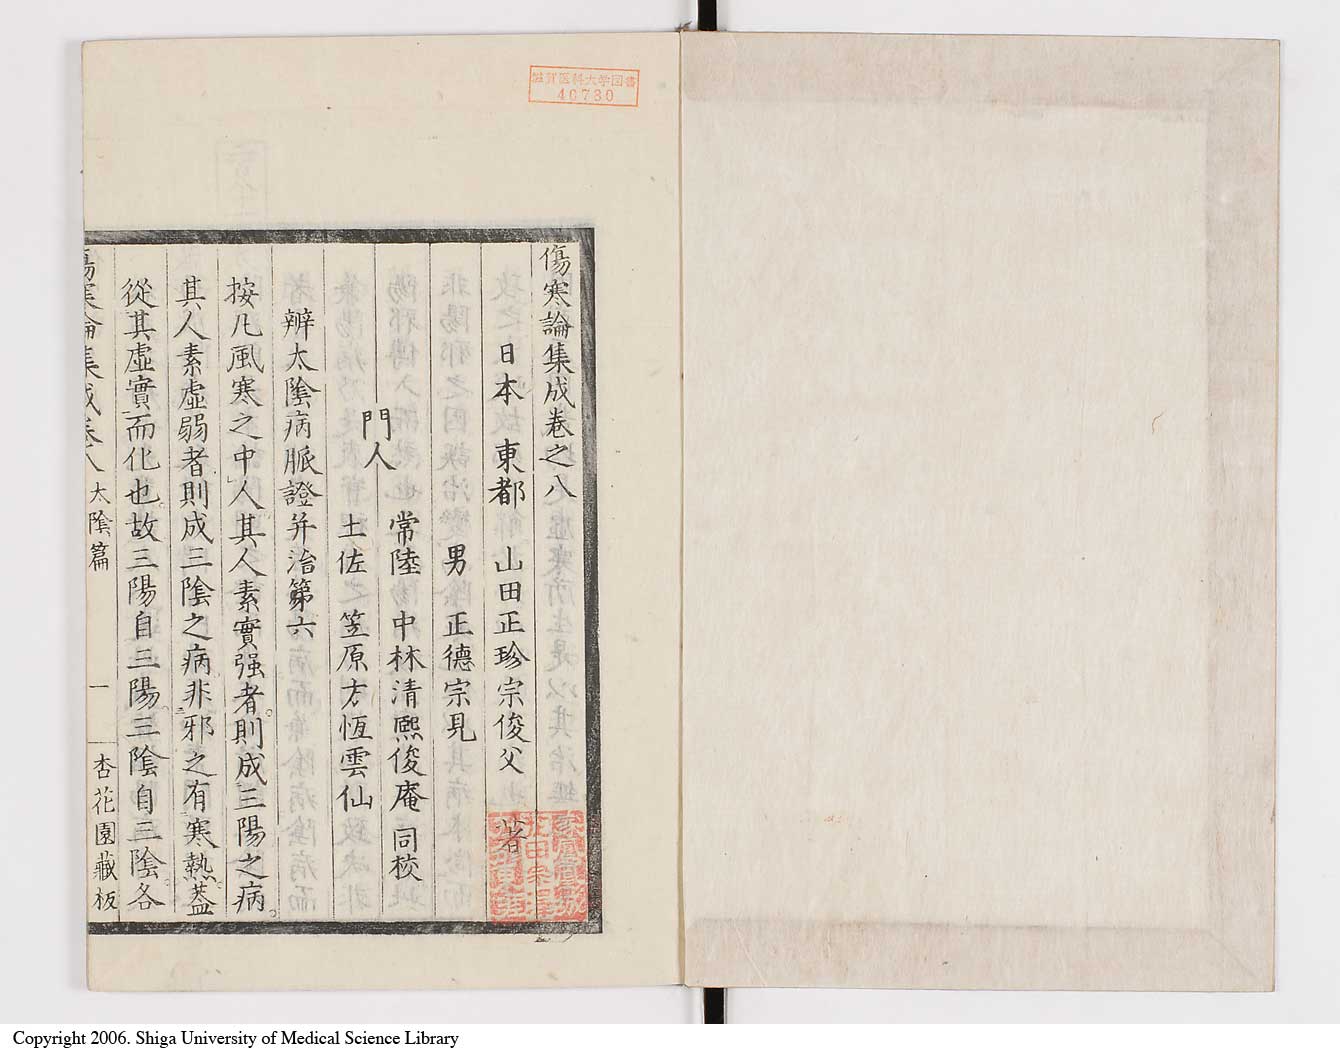 滋賀医科大学図書
40730
傷寒論集成卷之八
日本 東都 山田正珍宗俊父 著
男 正德宗見
門人
常陸 中林清熙俊庵 同校
土佐 笠原方恆雲仙
辨太陰病脈證并治第六
按凡風寒之中人其人素實强者則成三陽之病
其人素虛弱者則成三陰之病非邪之有寒熱蓋
從其虛實而化也故三陽自三陽三陰自三陰各
傷寒論集成卷八 太陰篇 一 杏花園藏板
Copyright 2006. Shiga University of Medical Science Library